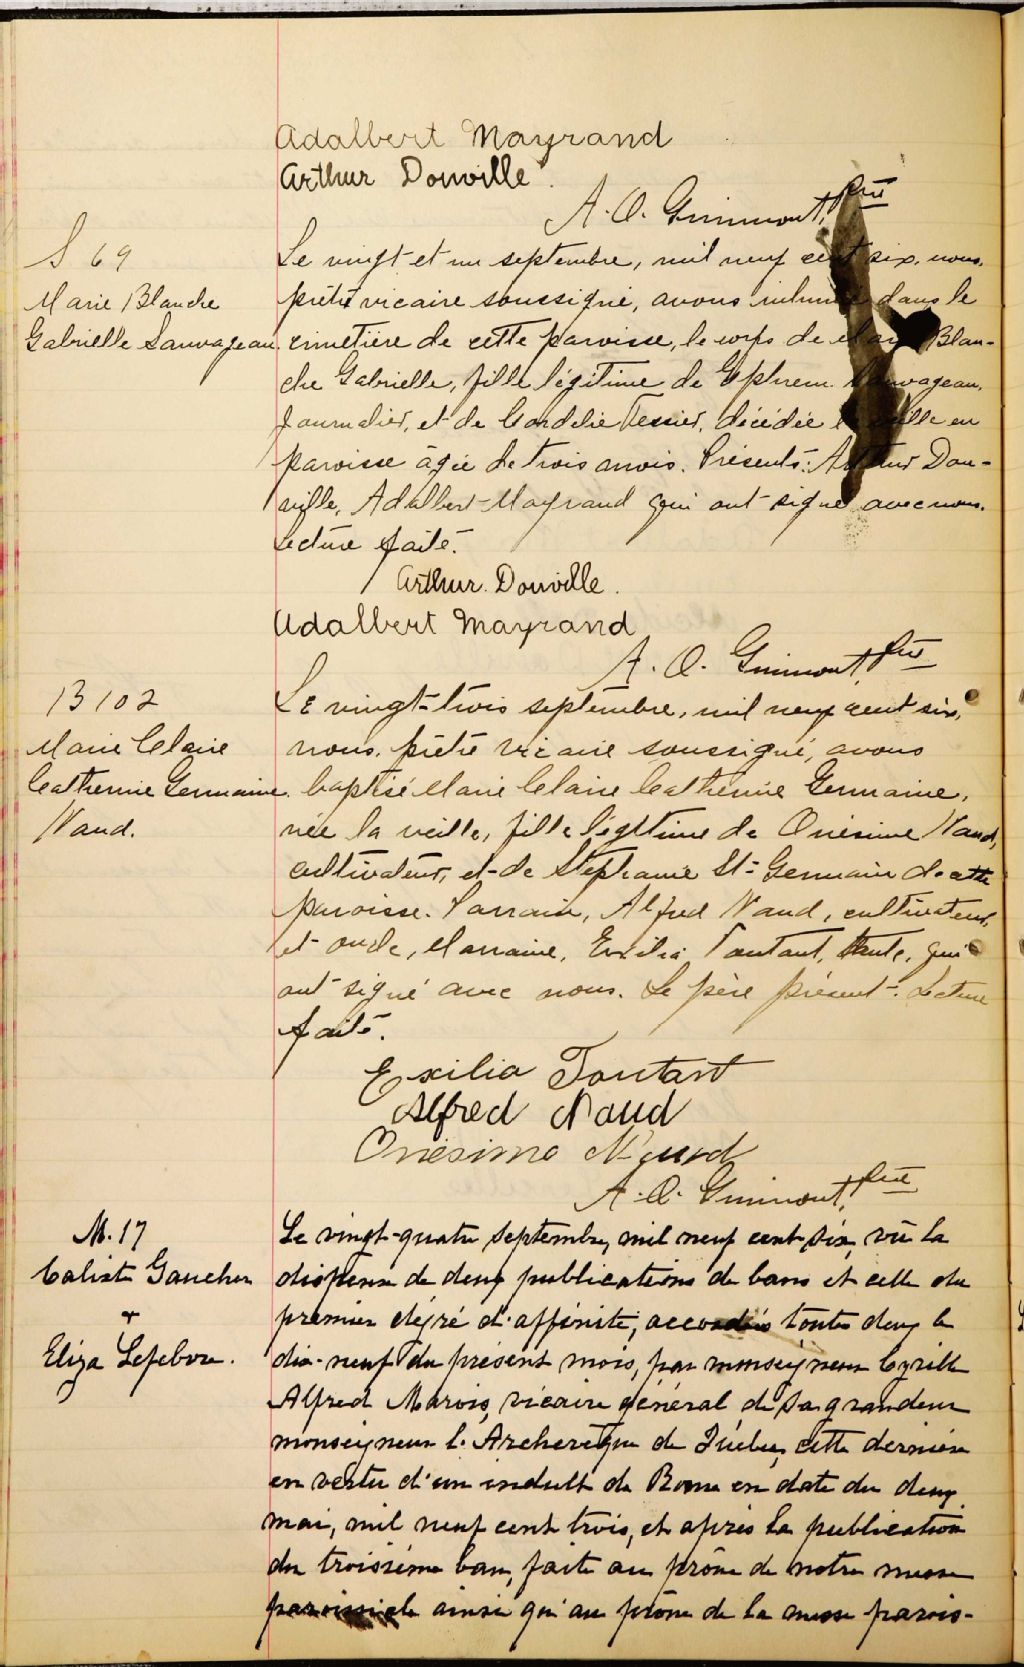 Adalbert Mayrand
Arthur Douville
A. O. Guimont, Ptre
S 69
Marie Blanche
Gabrielle Sauvageau
Le vingt et un septembre, mil neuf cent six, nous,
prêtre vicaire soussigné, avons inhumé dans le
cimetière de cette paroisse, le corps de Marie Blan-
che Gabrielle, fille légitime de Ephrem Sauvageau,
journalier, et de Cordélie Tessier, décédée la veille en
paroisse âgée de trois mois. Présents: Arthur Dou-
ville, Adalbert Mayrand qui ont signé avec nous.
Lecture faite.
Arthur Douville.
Adalbert Mayrand
A. O. Guimont, Ptre
B 102
Marie Claire
Catherine Germaine
Naud.
Le vingt-trois septembre, mil neuf cent six,
nous, prêtre vicaire soussigné, avons
baptisé Marie Claire Catherine Germaine,
née la veille, fille légitime de Onésime Naud,
cultivateur, et de Stéphanie St-Germain de cette
paroisse. Parrain, Alfred Naud, cultivateur,
et oncle, Marraine, Exilia Toutant, tante, qui
ont signé avec nous. Le père présent. Lecture
faite.
Exilia Toutant
Alfred Naud
Onésime Naud
A. O. Guimont, Ptre
M. 17
Calixte Gaucher
+
Eliza Lefebvre.
Le vingt-quatre septembre, mil neuf cent six, vû la
dispense de deux publications de bans et celle du
premier dégré d'affinité, accordées toutes deux le
dix-neuf du présent mois, par monseigneur Cyrille
Alfred Marois, vicaire général de Sa grandeur
monseigneur l'Archevêque de Québec, cette dernière
en vertu d'un indult de Rome en date du deux
mai, mil neuf cent trois, et après la publication
du troisième ban, faite au prône de notre messe
paroissiale ainsi qu'au prône de la messe parois-